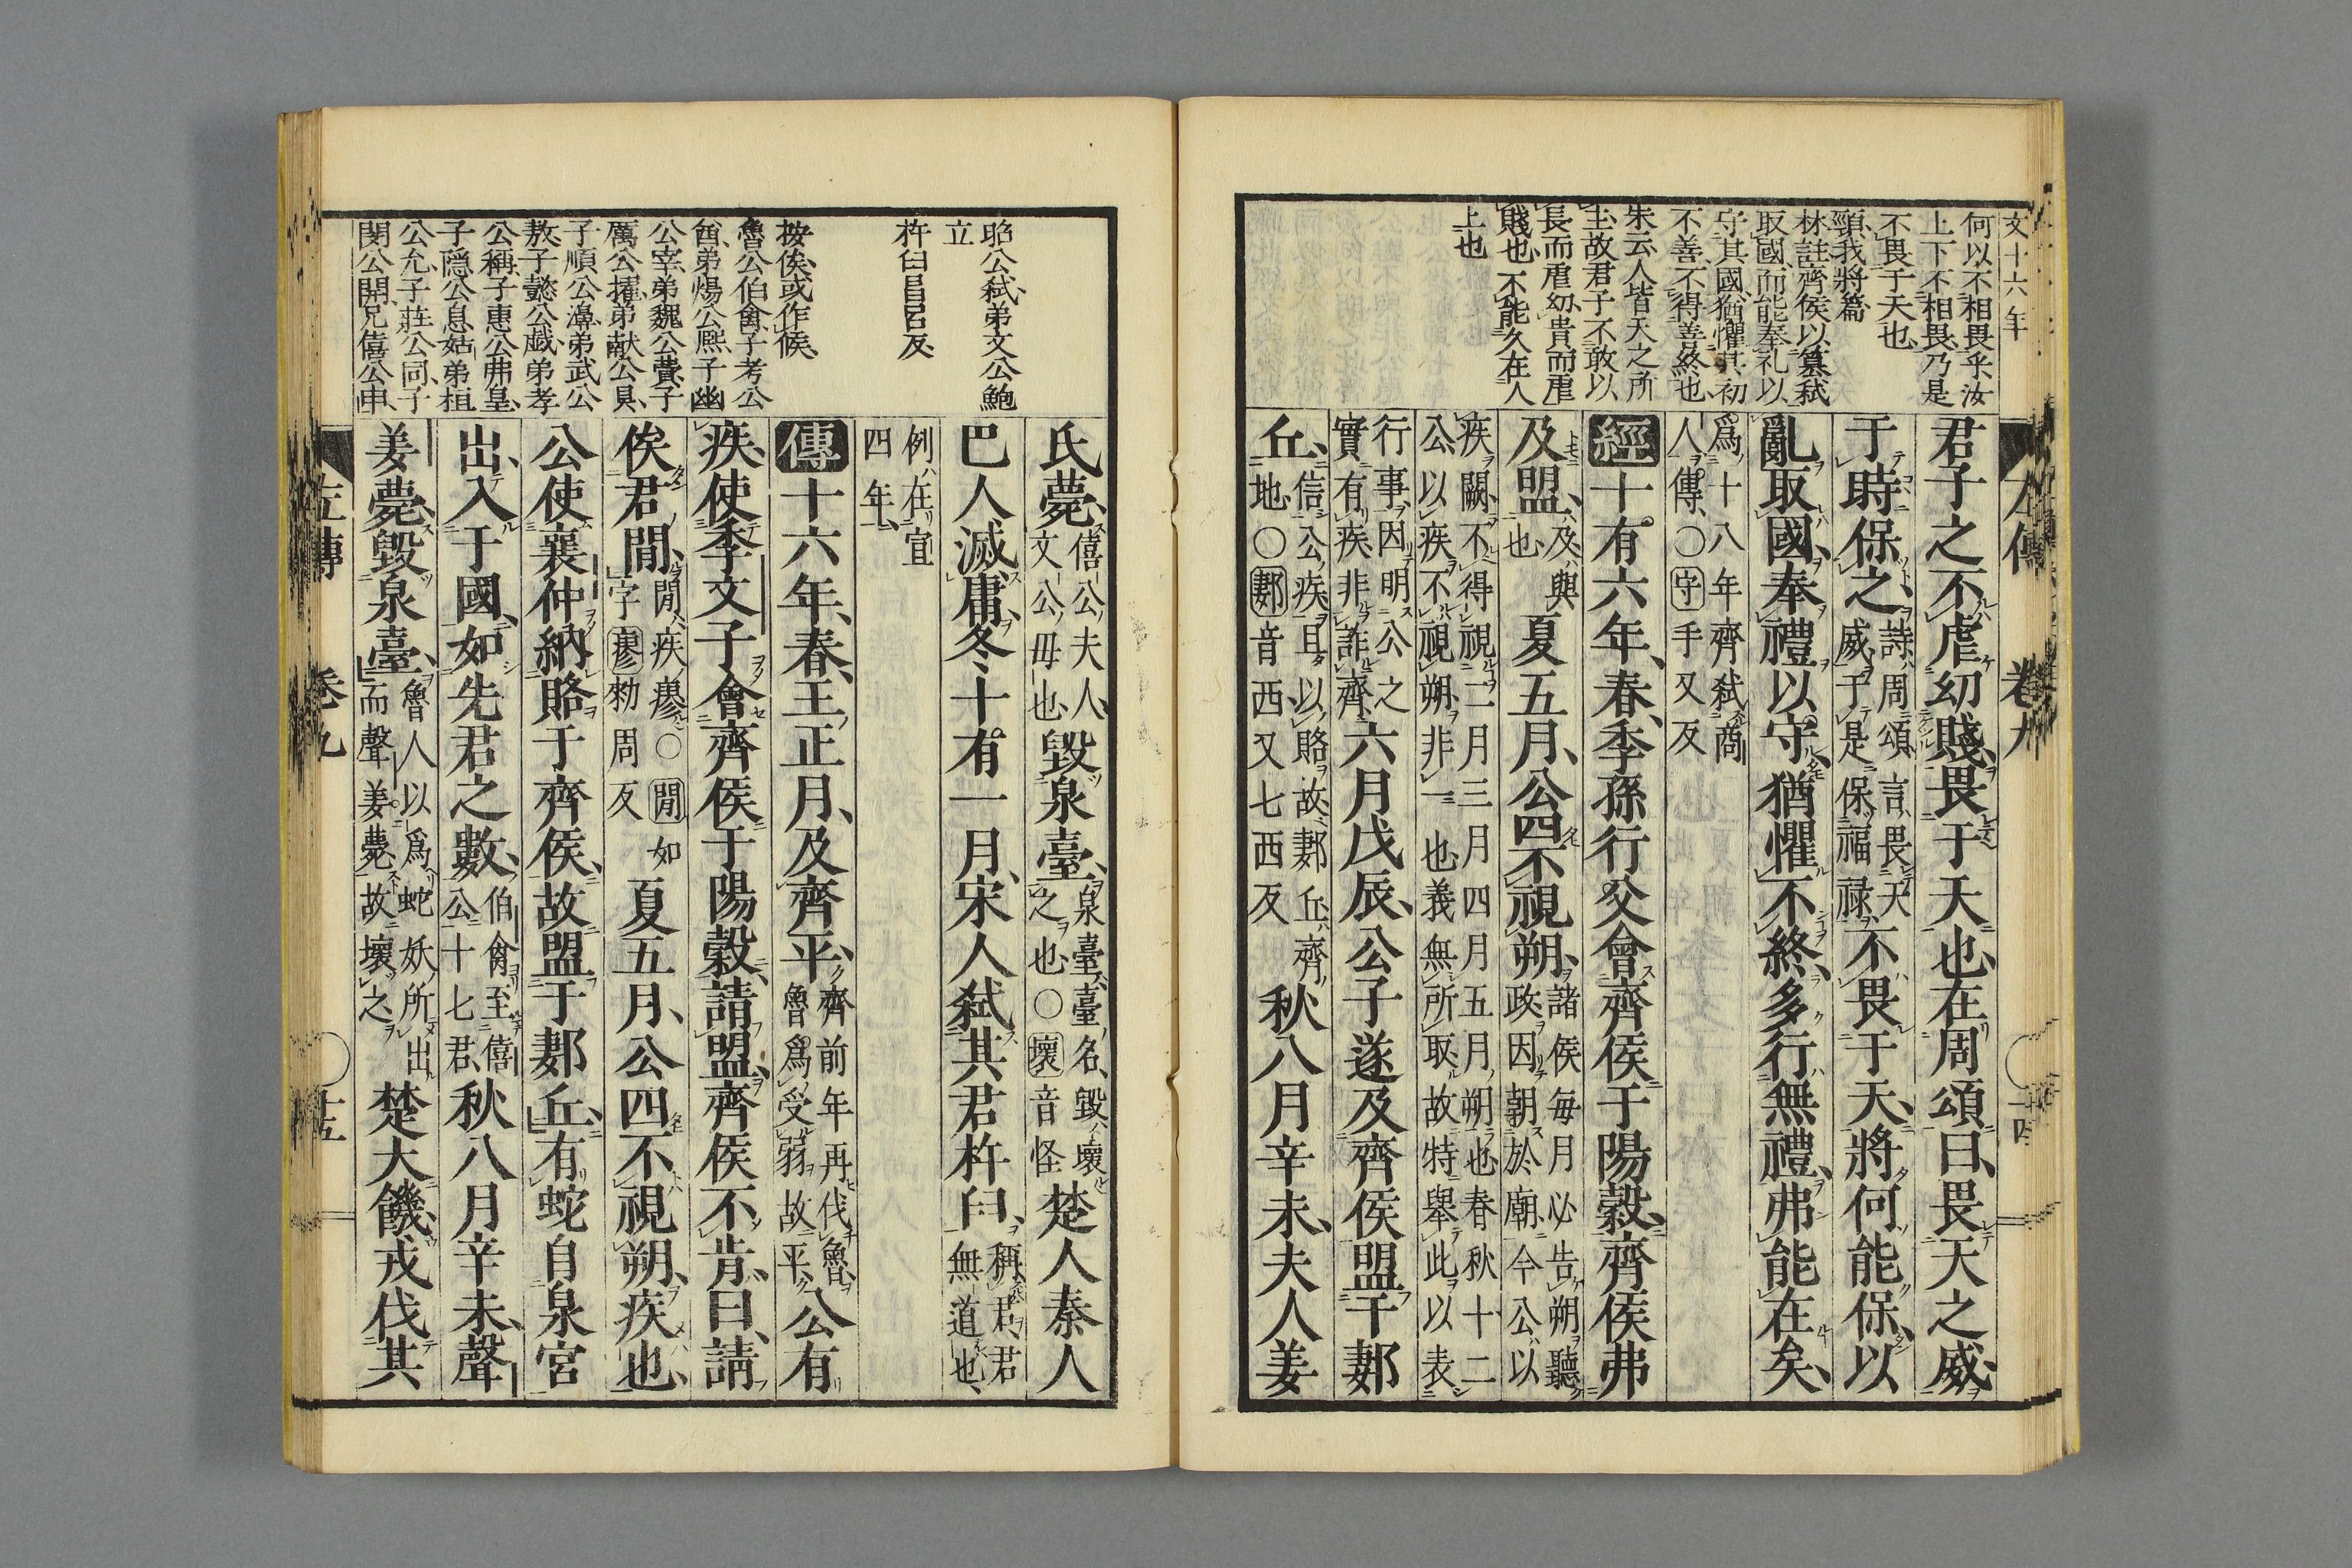 文十六年
何以不相畏乎汝
上下不相畏乃是
不畏于天也
頸我將篇
林註齊侯以簒弒
取國而能奉礼以
守其國猶懼其初
不善不得善終也
朱云人皆天之所
生故君子不敢以
長而虐幼貴而虐
賤也不能久在人
上也
君子之不虐幼賤畏于天也在周頌曰畏天之威
于時保之詩周頌言畏天威于是保福禄不畏于天將何能保以
亂取國奉禮以守猶懼不終多行無禮弗能在矣
爲十八年齊弒商人傳○守手又反
經十有六年春季孫行父會齊侯于陽穀齊侯弗
及盟及與也夏五月公四不視朔諸侯每月必告朔聽政因朝於廟今公以
疾闕不得視二月三月四月五月朔也春秋十二公以疾不視朔非一也義無所取故特舉此以表
行事因明公之實有疾非詐齊六月戊辰公子遂及齊侯盟于郪
丘信公疾且以賂故郪丘齊地○郪音西又七西反秋八月辛未夫人姜
左傳 卷九 十四
昭公弒弟文公鮑
立
杵臼昌呂反
按侯或作候
魯公伯禽子考公
酋弟煬公熈子幽
公宰弟魏公㵒子
厲公擢弟献公具
子順公濞弟武公
敖子懿公戯弟孝
公稱子惠公弗皇
子隱公息姑弟桓
公允子莊公同子
閔公開兄僖公申
氏薨僖公夫人文公毋也毀泉臺泉臺臺名毀壞之也○壞音怪楚人秦人
巴人滅庸冬十有一月宋人弒其君杵臼稱君君無道也
例在宣四年
傳十六年春王正月及齊平齊前年再伐魯魯爲受弱故平公有
疾使季文子會齊侯于陽穀請盟齊侯不肯曰請
俟君間間疾瘳○間如字瘳勑周反夏五月公四不視朔疾也
公使襄仲納賂于齊侯故盟于郪丘有蛇自泉宮
出入于國如先君之數伯禽至僖公十七君秋八月辛未聲
姜薨毀泉臺魯人以爲蛇妖所出而聲姜薨故壞之楚大饑戎伐其
左傳 卷九 十五